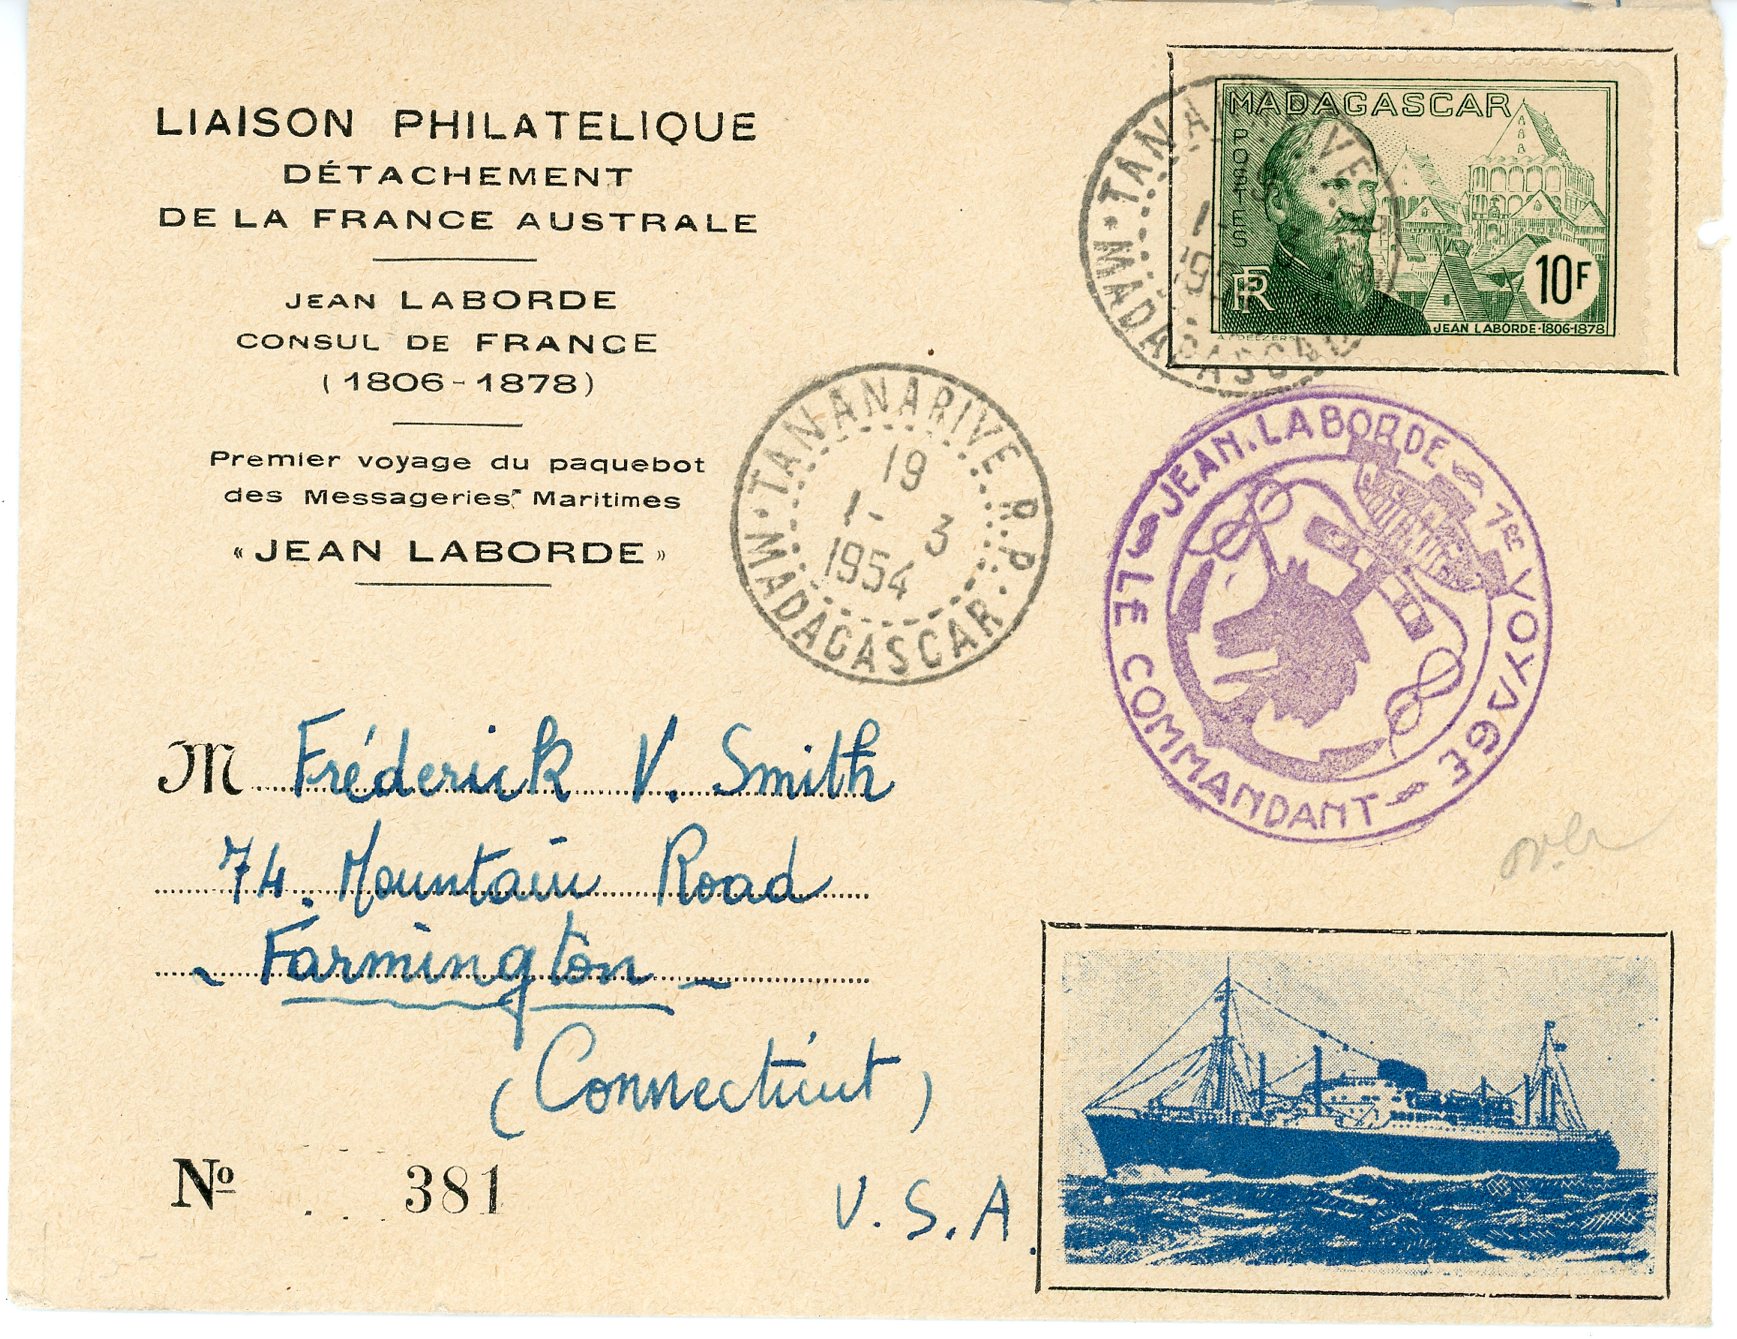 LIAISON PHILATELIQUE
DÉTACHEMENT
DE LA FRANCE AUSTRALE
JEAN LABORDE
CONSUL DE FRANCE
(1806-1878)
Premier voyage du paquebot
des Messageries Maritimes
«JEAN LABORDE»
MADAGASCAR
POSTES
RF
10F
JEAN LABORDE·1806-1878
TANANARIVE R.P.
19
1-3
1954
MADAGASCAR
JEAN.LABORDE 1er VOYAGE
LE COMMANDANT
M Fréderick V. Smith
74. Mountain Road
- Farmington -
(Connecticut)
U.S.A.
Nº 381